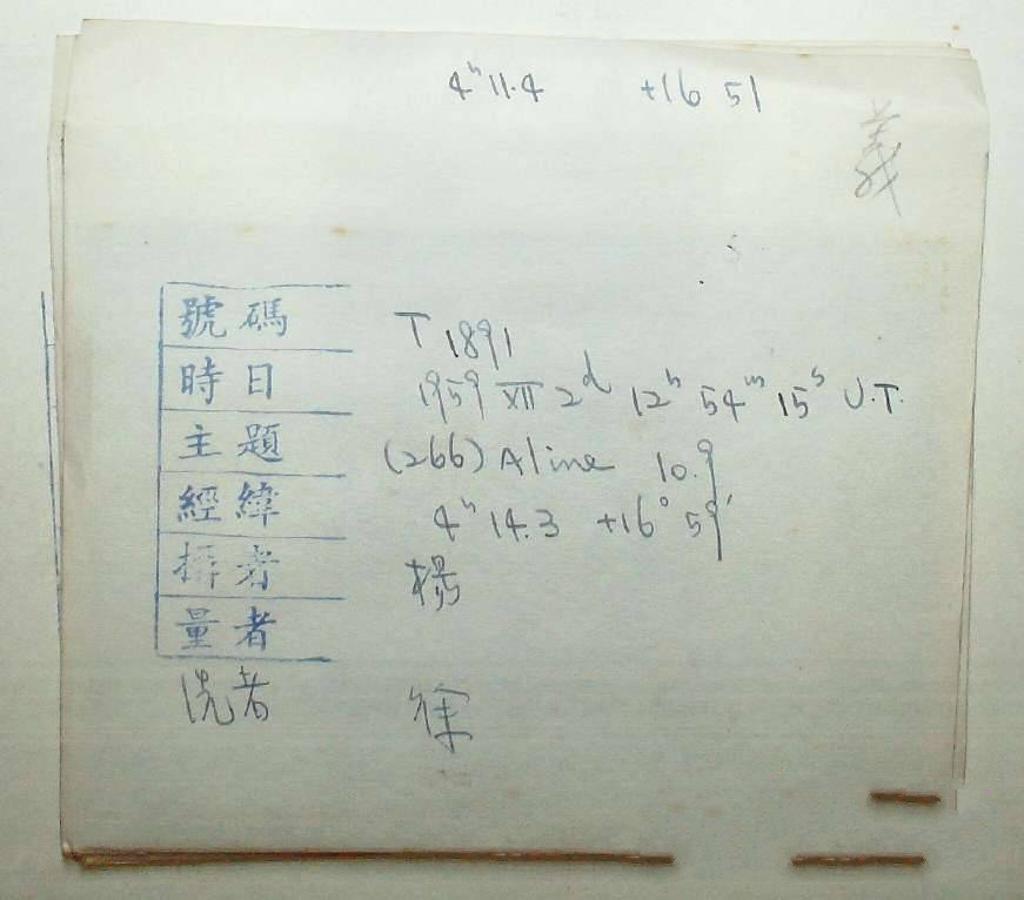 4ʰ 11.4 +16 51
義
號碼 T 1891
時日 1959 XII 2ᵈ 12ʰ 54ᵐ 15ˢ U.T.
主題 (266) Aline 10.9
經緯 4ʰ 14.3 +16° 59'
攝者 楊
量者
洗者 徐